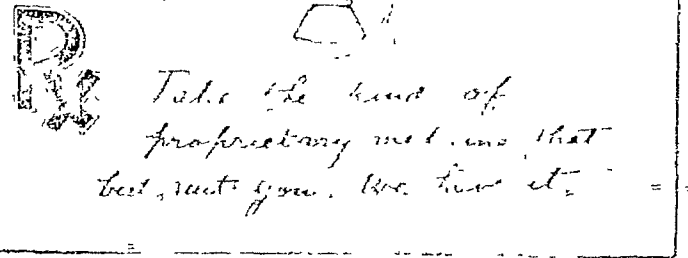 Rx
Take the kind of
proprietary medicine that
best suits you. We have it.